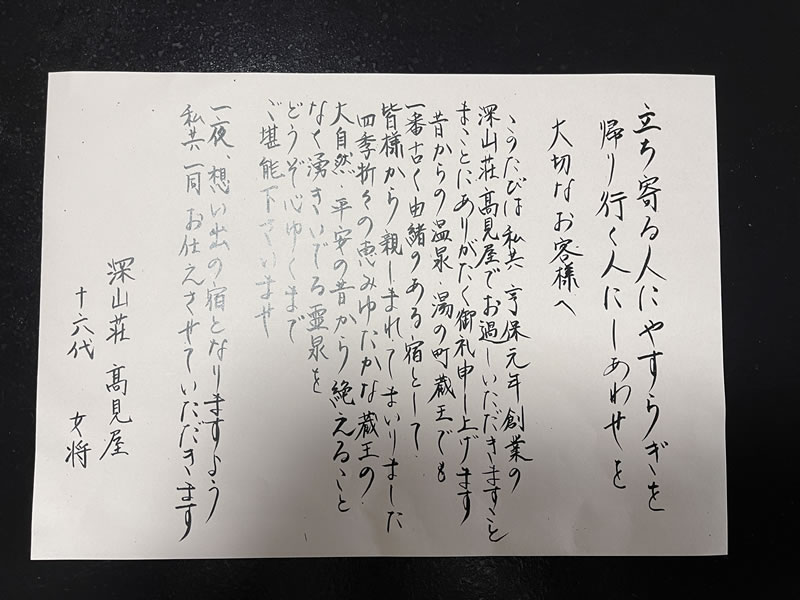 立ち寄る人にやすらぎを
帰り行く人にしあわせを
大切なお客様へ
このたびは私共 享保元年創業の
深山荘 髙見屋でお過しいただきますこと
まことにありがたく御礼申し上げます
昔からの温泉・湯の町蔵王でも
一番古く由緒のある宿として
皆様から親しまれてまいりました
四季折々の恵みゆたかな蔵王の
大自然・平安の昔から絶えること
なく湧きいでる霊泉を
どうぞ心ゆくまで
ご堪能下さいませ
一夜、想い出の宿となりますよう
私共一同お仕えさせていただきます
深山荘 髙見屋
十六代 女将